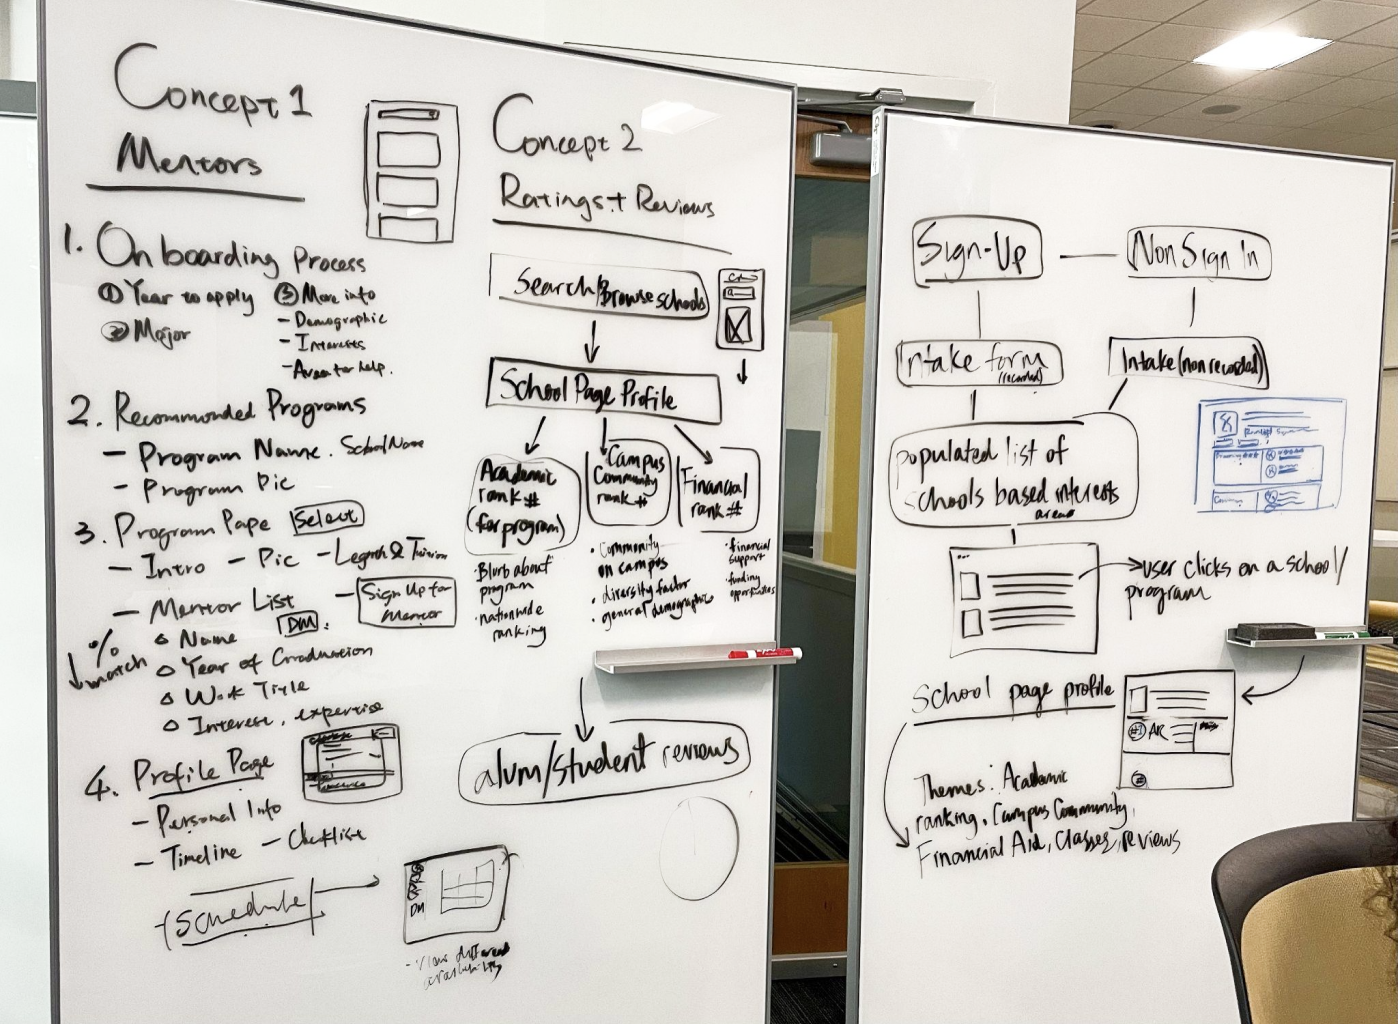 Concept 1
Mentors
1. Onboarding Process
① Year to apply
② Major
③ More info
- Demographic
- Interests
- Area for help.
2. Recommended Programs
- Program Name. School Name
- Program Pic
3. Program Page [Select]
- Intro - Pic - Length & Tuition
- Mentor List
- Sign Up for
Mentor
DM
% match
Name
Year of Graduation
Work Title
Interest, expertise
4. Profile Page
- Personal Info
- Timeline - Checklist
Schedule
DM
- View different
availability
Concept 2
Ratings + Reviews
Search/Browse schools
School Page Profile
Academic
rank #
(for program)
Campus
Community
rank #
Financial
rank #
• Blurb about
program
• nationwide
ranking
• Community
on campus
• diversity factor
• general demographics
• financial
support
• funding
opportunities
alum/student reviews
Sign-Up
Non Sign In
Intake form
(recorded)
Intake (non recorded)
populated list of
schools based interests
areas
user clicks on a school/
program
School page profile
#1 AR
#
Themes: Academic
ranking, Campus Community,
Financial Aid, Classes, reviews